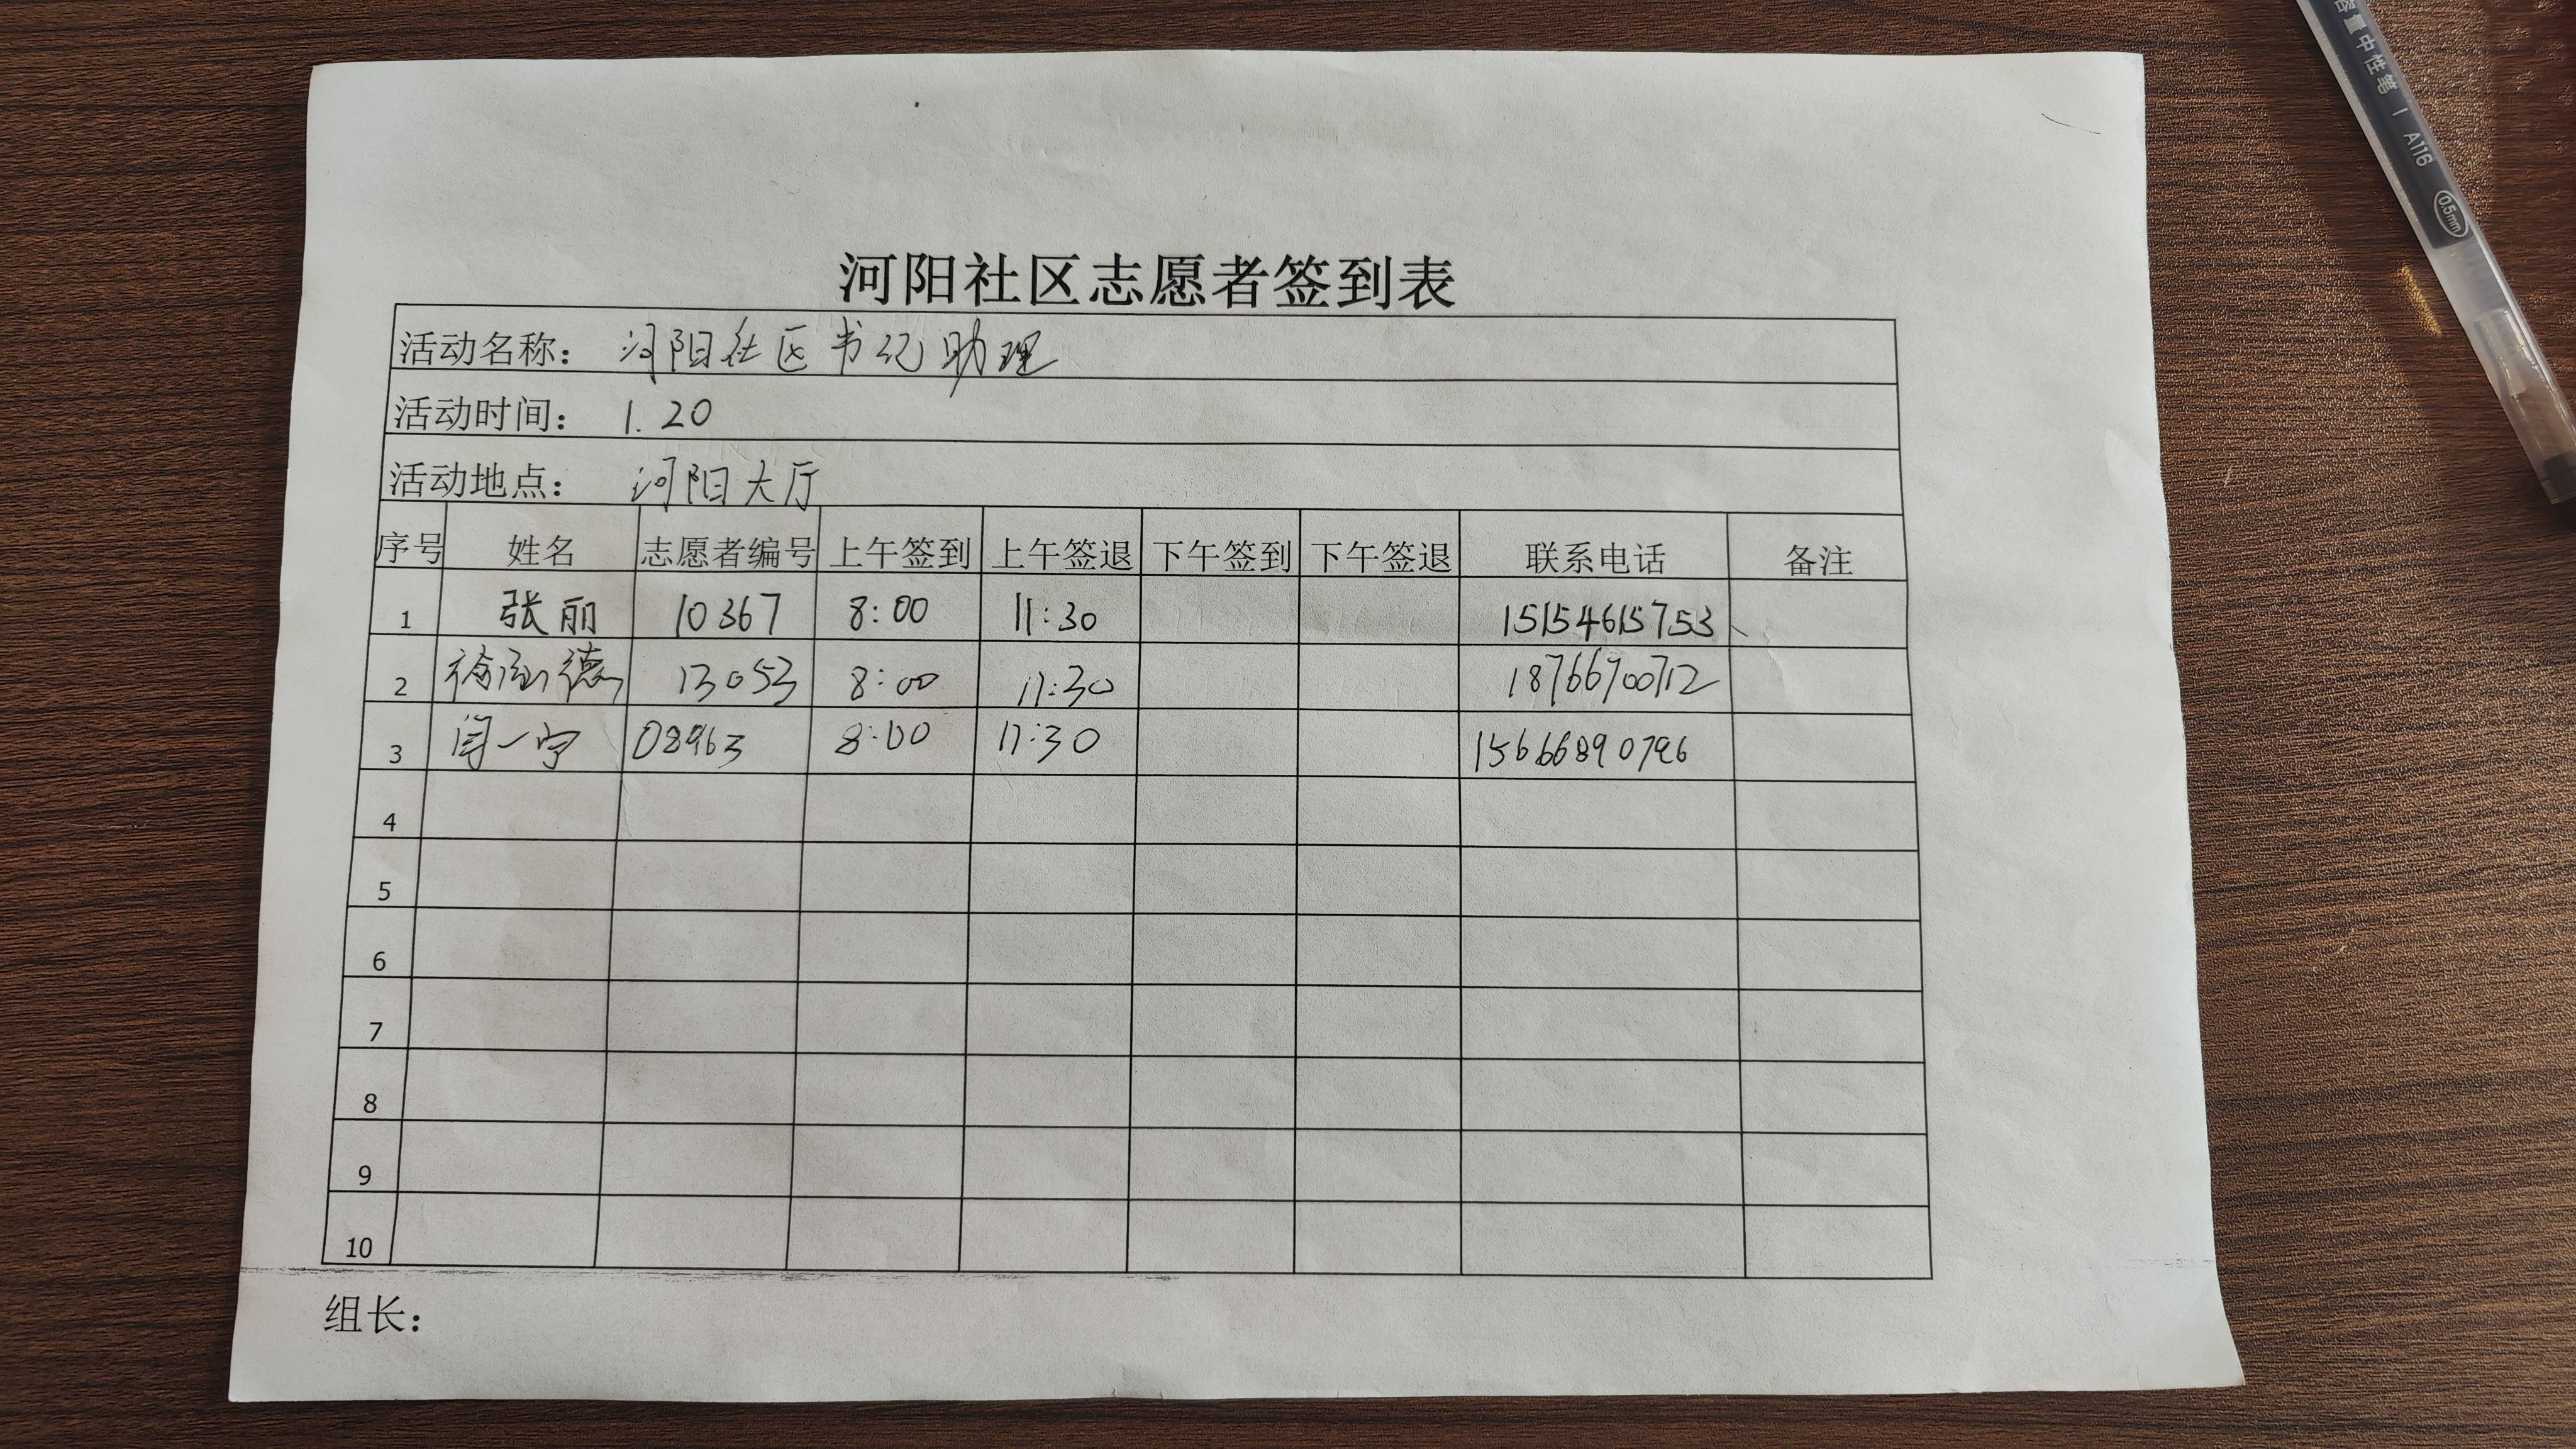 河阳社区志愿者签到表
活动名称: 河阳社区书记助理
活动时间: 1.20
活动地点: 河阳大厅
序号 姓名 志愿者编号 上午签到 上午签退 下午签到 下午签退 联系电话 备注
1 张丽 10367 8:00 11:30 15154615753、
2 德 13053 8:00 11:30 18766700712
3 闫一宁 08963 8:00 11:30 15666890796
4
5
6
7
8
9
10
组长:
容量中性笔 | A116 0.5mm